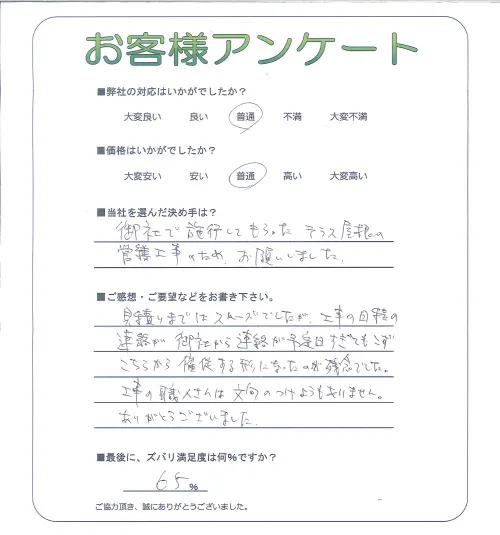 お客様アンケート
■弊社の対応はいかがでしたか？
大変良い 良い 普通 不満 大変不満
■価格はいかがでしたか？
大変安い 安い 普通 高い 大変高い
■当社を選んだ決め手は？
御社で施行してもらった テラス屋根の
営繕工事のため、お願いしました。
■ご感想・ご要望などをお書き下さい。
見積りまではスムーズでしたが、工事の日程の
連絡が 御社から連絡が予定日すぎてもこず
こちらから催促する形になったのが残念でした。
工事の職人さんは文句のつけようもありません。
ありがとうございました。
■最後に、ズバリ満足度は何%ですか？
65%
ご協力頂き、誠にありがとうございました。